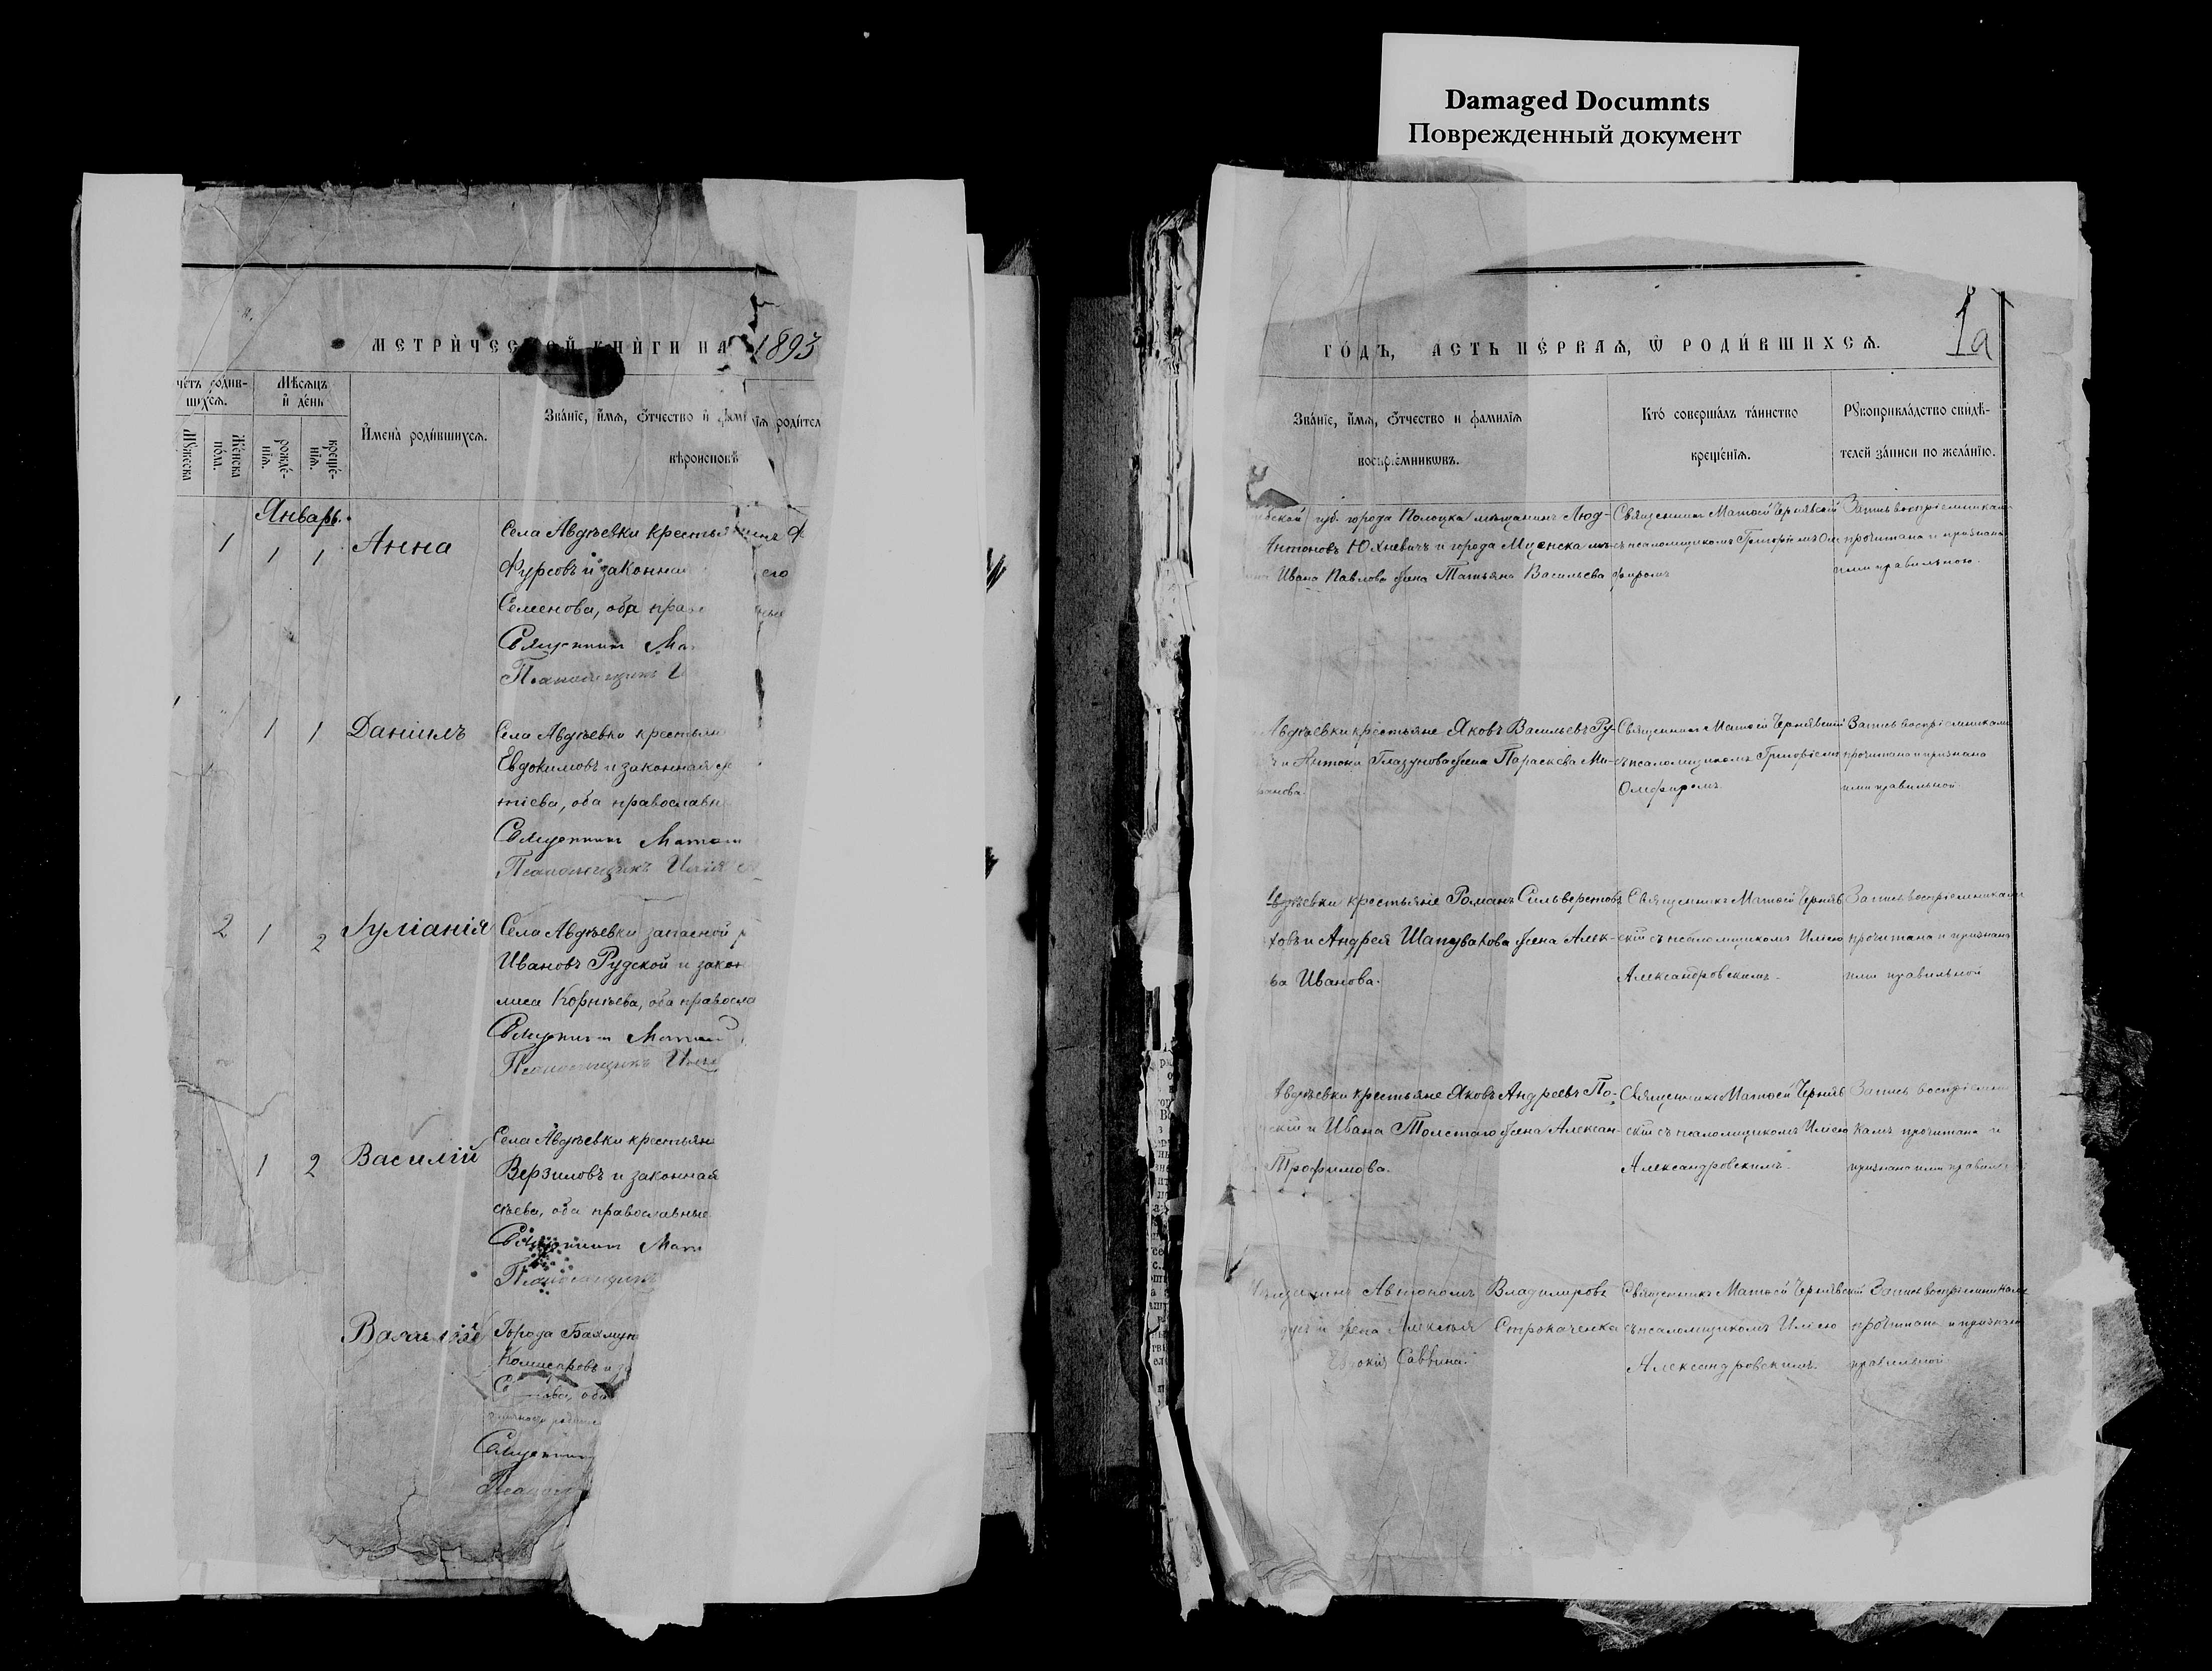 Damaged Documnts
Поврежденный документ
МЕТРИ́ЧЕСКОЙ КНИ́ГИ НА 1893
че́тъ роди́вшихсѧ.
Мѣ́сѧцъ и҆ де́нь
И҆мена̀ роди́вшихсѧ.
Зва́нїе, и҆́мѧ, ѻ҆́тчество и҆ фамі лїѧ роди́тел
вѣроисповѣ
Мꙋ́жеска
Же́нска по́ла.
рожде́нїѧ.
креще́нїѧ.
Январь.
1 1 1 Анна
Села Авдѣевки крестьянинъ
Фурсовъ и законная его
Семенова, оба прав
Священникъ Ма
Псаломщикъ И
1 1 Даніилъ
Села Авдѣевки крестьян
Евдокимовъ и законная
тіева, оба православн
Священникъ Матѳей
Псаломщикъ Илія
2 1 2 Іуліанія
Села Авдѣевки запасной р
Ивановъ Рудской и закон
лиса Корнѣева, оба правосла
Священникъ Матѳей
Псаломщикъ Илія
1 2 Василій
Села Авдѣевки крестьян
Верзиловъ и законная
сѣева, оба православные
Священникъ Матѳ
Псаломщикъ
Василій
Города Бахмут
Комисаровъ и за
оба
Священник
Псалом
1а
ГО́ДЪ, АСТЬ ПЕ́РВАѦ, Ѡ҆ РОДИ́ВШИХСѦ.
Зва́нїе, и҆́мѧ, ѻ҆́тчество и фамилїѧ
воспрїе́мникѡвъ.
Кто̀ соверша́лъ та́инство
креще́нїѧ.
Рꙋкоприкла́дство свидѣ́-
телей за́писи по жела́нїю.
губ. города Полоцка мѣщанинъ Люд-
Антоновъ Юхневичъ и города Мценска мѣ-
Ивана Павлова жена Татьяна Васильева
Священникъ Матѳей Чернявскій
съ псаломщикомъ Григоріемъ Ом
фиромъ
Запись воспріемникам
прочитана и признана
ими правильною.
Авдѣевки крестьяне Яковъ Васильевъ Ру-
и Антона Глазунова жена Параскева Ми-
фанова.
Священникъ Матѳей Чернявскій
съ псаломщикомъ Григоріемъ
Омфиромъ.
Запись воспріемниками
прочитана и признана
ими правильной
Авдѣевки крестьяне Романъ Сильверстовъ
ковъ и Андрея Шаповалова жена Алек-
ва Иванова.
Священникъ Матѳей Черняв
скій съ псаломщикомъ Иліею
Александровскимъ.
Запись воспріемниками
прочитана и признана
ими правильной
Авдѣевки крестьяне Яковъ Андреевъ По-
скій и Ивана Толстаго жена Алексан-
Трофимова.
Священникъ Матѳей Черняв
скій съ псаломщикомъ Иліею
Александровскимъ.
Запись воспріемни
камъ прочитана и
признана ими правиль
Мѣщанинъ Автономъ Владимировъ
и жена Алексѣя Строкаченка
Евдокія Саввина.
Священникъ Матѳей Чернявскій
съ псаломщикомъ Иліею
Александровскимъ.
Запись воспріемниками
прочитана и признана
правильной